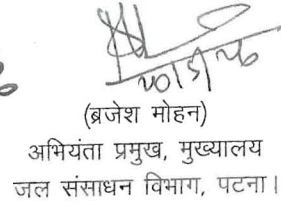 (ब्रजेश मोहन)
अभियंता प्रमुख, मुख्यालय
जल संसाधन विभाग, पटना।